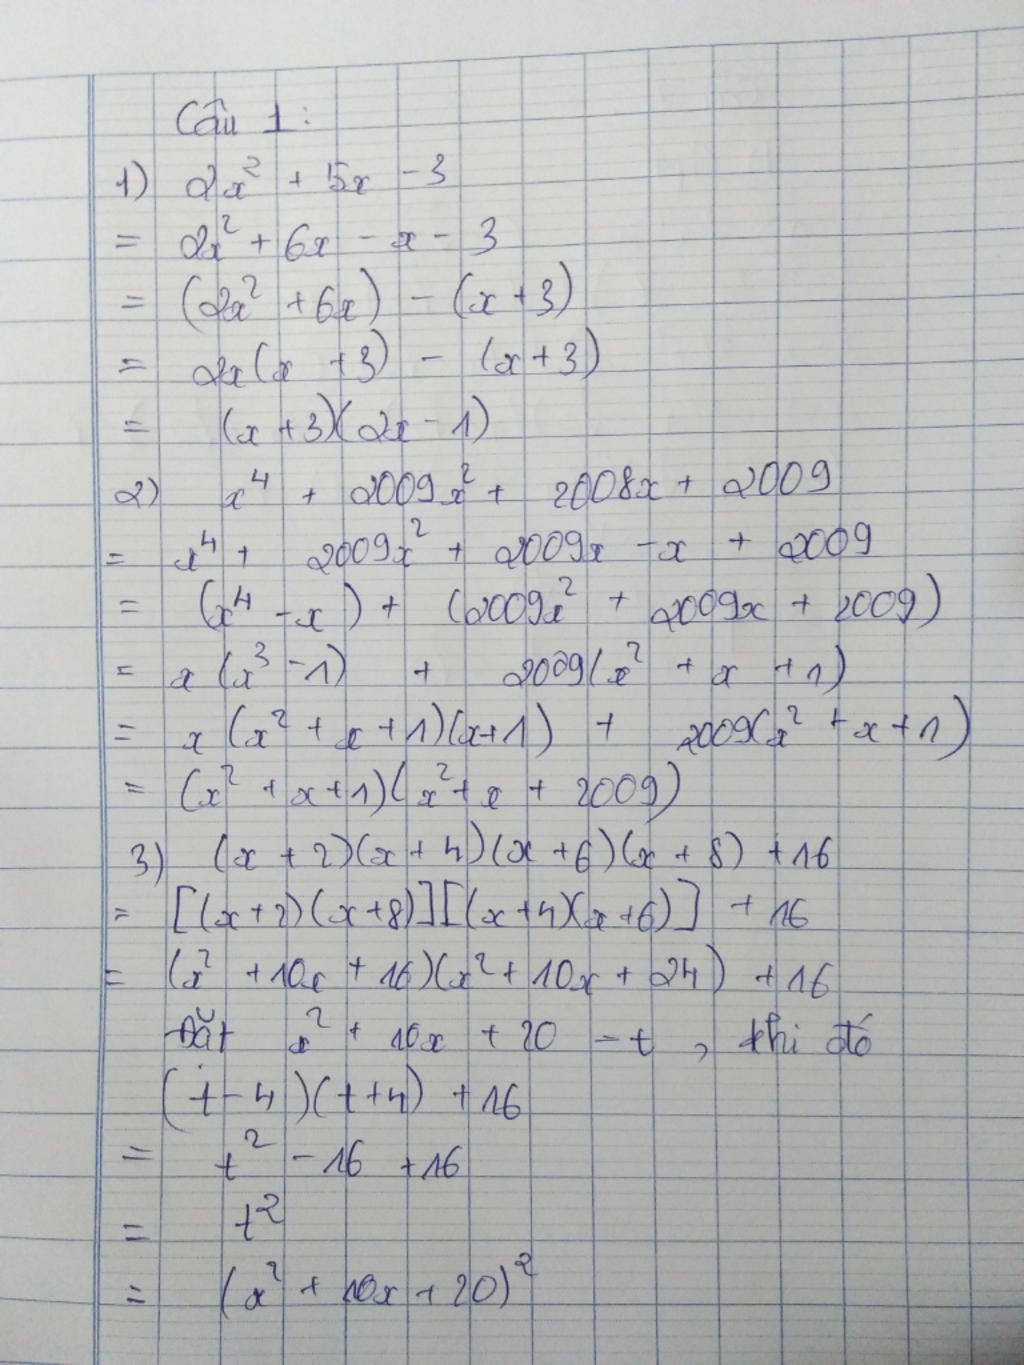 Câu 1:
1) 2x² + 5x - 3
= 2x² + 6x - x - 3
= (2x² + 6x) - (x + 3)
= 2x(x + 3) - (x + 3)
= (x + 3)(2x - 1)
2) x⁴ + 2009x² + 2008x + 2009
= x⁴ + 2009x² + 2009x - x + 2009
= (x⁴ - x) + (2009x² + 2009x + 2009)
= x(x³ - 1) + 2009(x² + x + 1)
= x(x² + x + 1)(x+1) + 2009(x² + x + 1)
= (x² + x + 1)(x² + x + 2009)
3) (x + 2)(x + 4)(x + 6)(x + 8) + 16
= [(x+2)(x+8)][(x+4)(x+6)] + 16
= (x² + 10x + 16)(x² + 10x + 24) + 16
Đặt x² + 10x + 20 = t, khi đó
(t - 4)(t + 4) + 16
= t² - 16 + 16
= t²
= (x² + 10x + 20)²